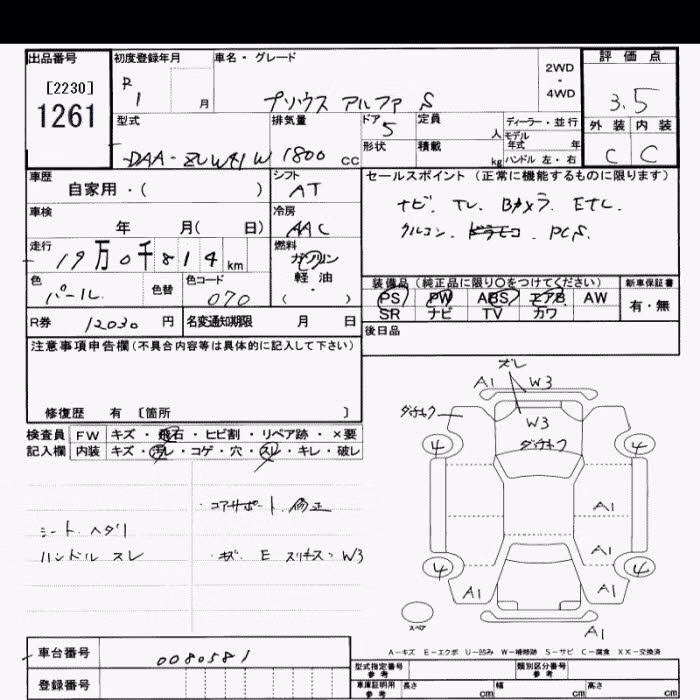 出品番号 初度登録年月 車名・グレード 2WD・4WD 評価点
[2230] R1 月 プリウス アルファ S 3.5
1261 型式 排気量 ドア 5 定員 人 ディーラー・並行 外装 内装
DAA-ZVW41W 1800 cc 形状 積載 kg モデル年式 年 ハンドル 左・右 C C
車歴 シフト セールスポイント (正常に機能するものに限ります)
自家用・( ) AT ナビ. TV. Bカメラ. ETC.
車検 冷房 クルコン. PCS.
年 月( 日) AAC
走行 燃料
19万0千814km ガソリン
色 色替 色コード 軽油
パール. 070 ・( )
装備品 (純正品に限り○をつけてください) 新車保証書
PS PW ABS エアB AW 有・無
SR ナビ TV カワ
R券 12030 円 名変通知期限 月 日
後日品
注意事項申告欄(不具合内容等は具体的に記入して下さい)
修復歴 有 〔箇所 〕
検査員 FW キズ・飛石・ヒビ割・リペア跡・×要
記入欄 内装 キズ・汚レ・コゲ・穴・スレ・キレ・破レ
・コアサポート 修正
シート ヘタリ
ハンドル スレ ・キズ. E スリキズ. W3
ズレ
A1 W3
W3
4 4
A1
A1
4 4
A1 A1
スペア
A1
A-キズ E-エクボ U-凹み W-補修跡 S-サビ C-腐食 XX-交換済
車台番号 0080581 型式指定番号 参考 類別区分番号 参考
登録番号 車庫証明用 参考 長さ cm 幅 cm 高さ cm